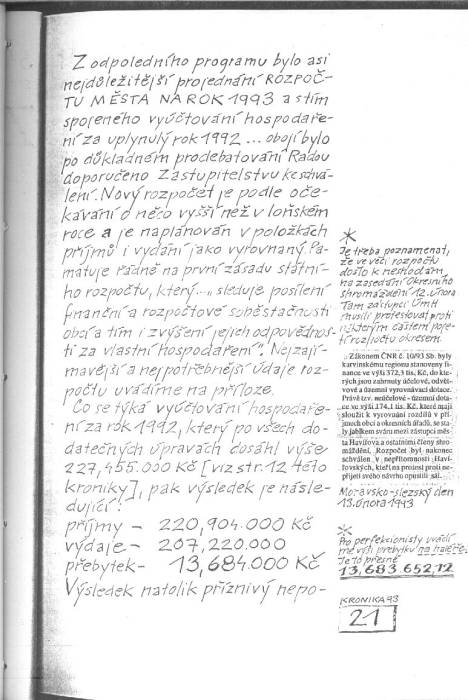 Z odpoledního programu bylo asi
nejdůležitější projednání ROZPOČ-
TU MĚSTA NA ROK 1993 a s tím
spojeného vyúčtování hospodaře-
ní za uplynulý rok 1992 ... obojí bylo
po důkladném prodebatování Radou
doporučeno Zastupitelstvu ke schvá-
lení. Nový rozpočet je podle oče-
kávání o něco vyšší než v loňském
roce a je naplánován v položkách
příjmů i vydání jako vyrovnaný. Pa-
matuje řádně na první zásadu státní-
ho rozpočtu, který... „sleduje posílení
finanční a rozpočtové soběstačnosti
obcí a tím i zvýšení jejich odpovědnos-
ti za vlastní hospodaření". Nejzají-
mavější a nejpotřebnější údaje roz-
počtu uvádíme na příloze.
Co se týká vyúčtování hospodaře-
ní za rok 1992, který po všech do-
datečných úpravách dosáhl výše
227,455.000 Kč [viz str. 12 této
kroniky], pak výsledek je násle-
dující:
příjmy - 220,904.000 Kč
výdaje - 207,220.000
přebytek - 13,684.000 Kč
Výsledek natolik příznivý nepo-
*
Je třeba poznamenat,
že ve věci rozpočtu
došlo k neshodám
na zasedání Okresního
shromáždění 12. února
Tam zástupci
museli protestovat proti
některým částem poje-
tí rozpočtu okresem.
„Zákonem ČNR č. 10/93 Sb. byly
karvinskému regionu stanoveny fi-
nance ve výši 372,3 tis. Kč, do kte-
rých jsou zahrnuty účelové, odvět-
vové a územní vyrovnávací dotace.
Právě tzv. neúčelové - územní dota-
ce ve výši 174,1 tis. Kč, které mají
sloužit k vyrovnání rozdílů v pří-
jmech obcí a okresních úřadů, se sta-
ly jablkem sváru mezi zástupci měs-
ta Havířova a ostatními členy shro-
máždění. Rozpočet byl nakonec
schválen v nepřítomnosti „Haví-
řovských, kteří na protest proti ne-
přijetí svého návrhu opustili sál.
Moravsko-slezský den
13. února 1993
*
Pro perfekcionisty uvádí-
me výši přebytku na haléře:
Je to přesně
13,683 652,12
KRONIKA 93
21